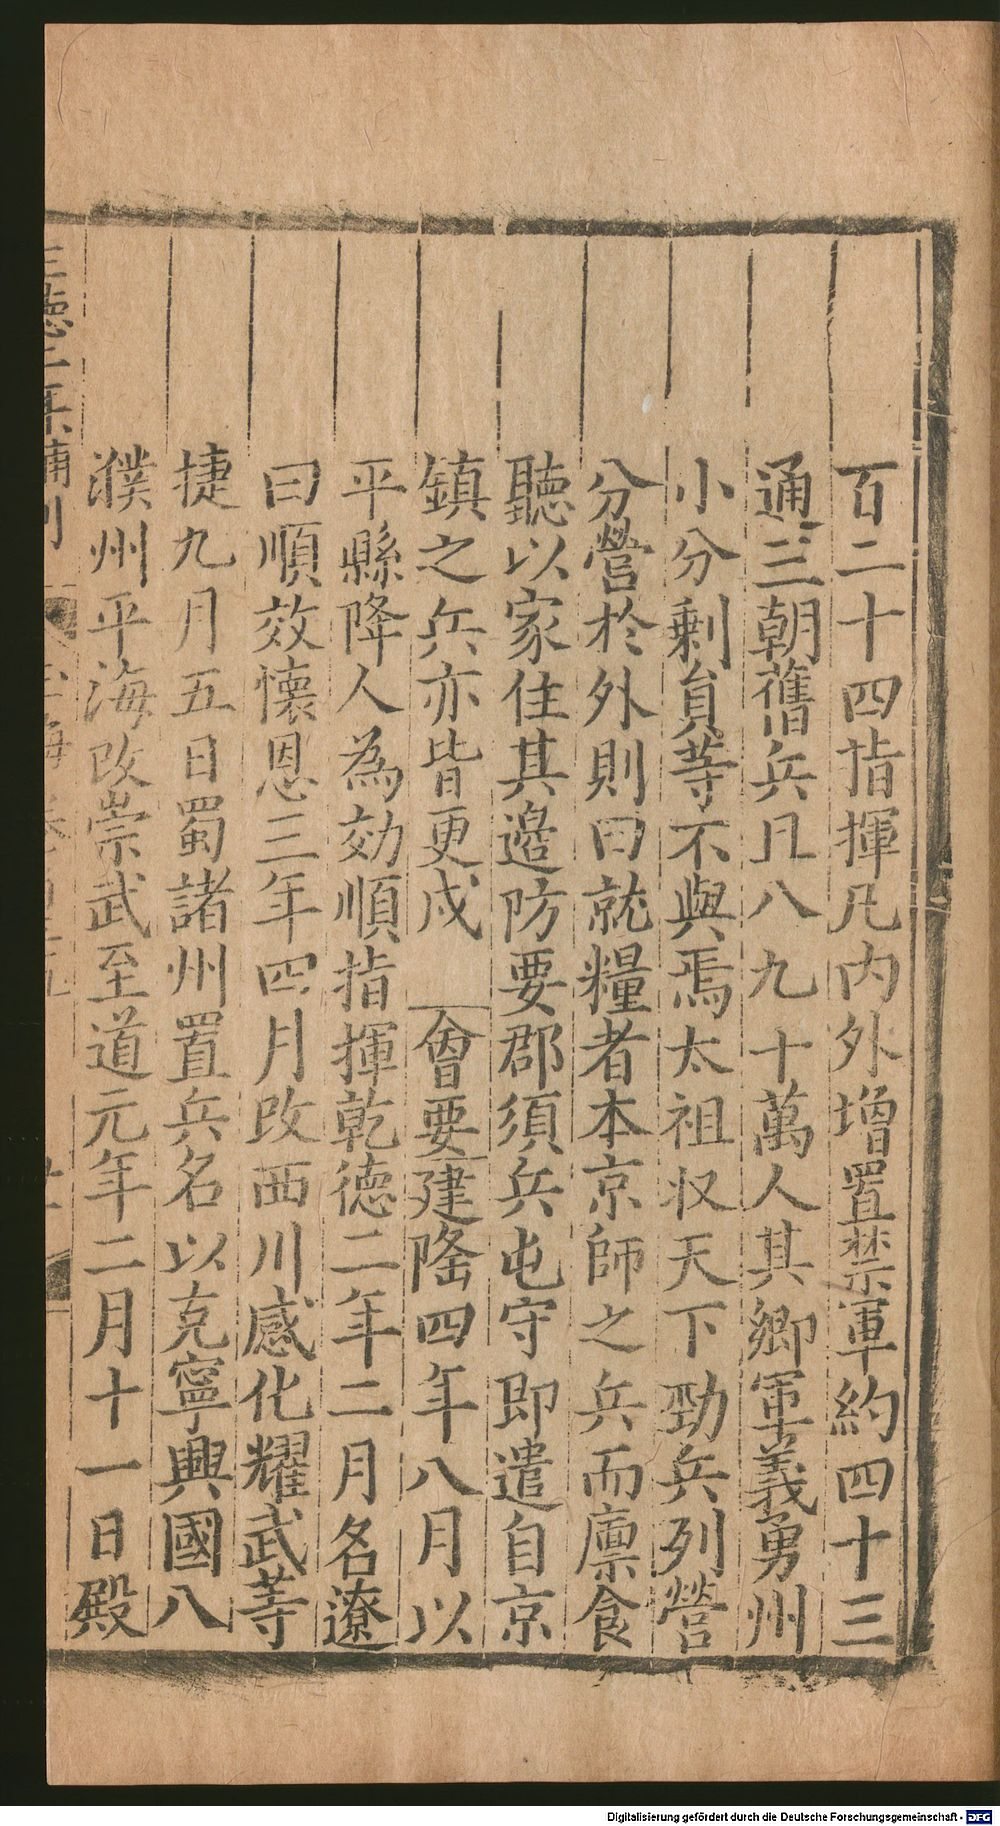 百二十四指揮凡内外增置禁軍約四十三
通三朝舊兵且八九十萬人其鄉軍義勇州
小分剩負等不與焉太祖収天下勁兵列營
分營於外則曰就糧者本京師之兵而廩食
聽以家住其邉防要郡須兵屯守即遣自京
鎮之兵亦皆更戍 會要建隆四年八月以
平縣降人為効順指揮乾德二年二月名遼
曰順效懷恩三年四月改西川感化耀武等
捷九月五日蜀諸州置兵名以克寧興國八
濮州平海改崇武至道元年二月十一日殿
正德二年補刊
Digitalisierung gefördert durch die Deutsche Forschungsgemeinschaft - DFG